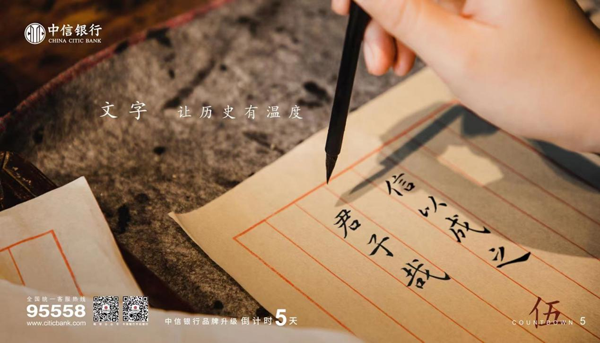 中信银行
CHINA CITIC BANK
文字 让历史有温度
信以成之
君子哉
全国统一客服热线
95558
www.citicbank.com
中信银行品牌升级 倒计时5天
伍
COUNTDOWN 5